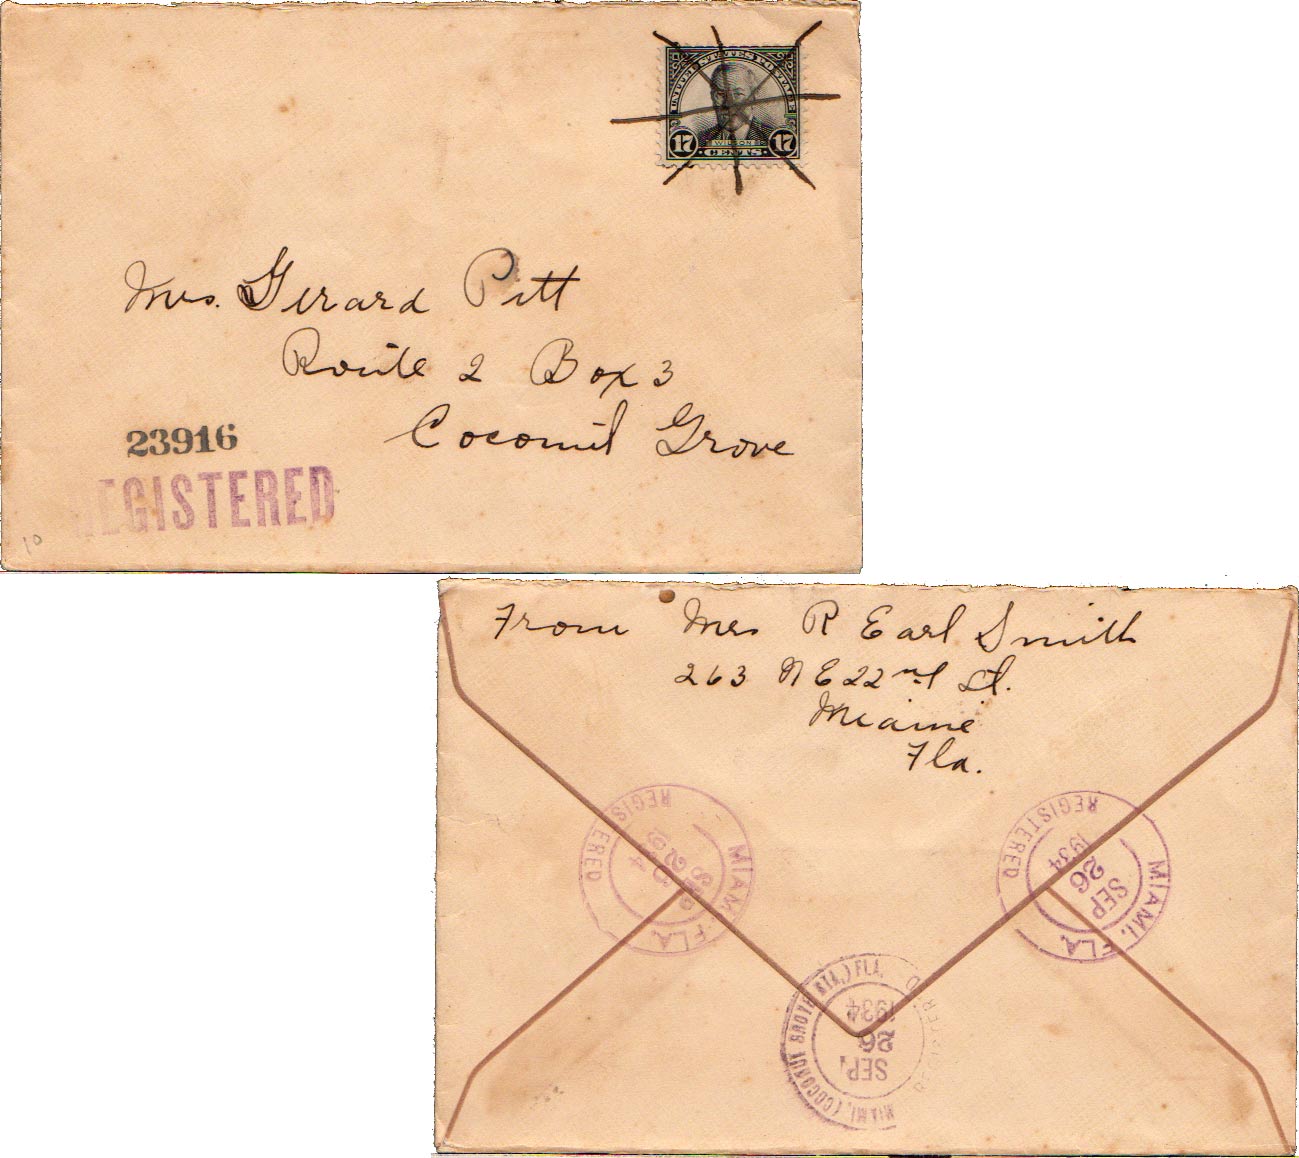 UNITED STATES POSTAGE
17 WILSON 17
CENTS
Mrs. Girard Pitt
Route 2 Box 3
Coconut Grove
23916
REGISTERED
10
From Mrs R Earl Smith
263 N E 22nd St.
Miami
Fla.
REGISTERED
MIAMI, FLA.
SEP
REGISTERED
1934
26
SEP
MIAMI, FLA.
MIAMI, (COCONUT GROVE STA.) FLA.
REGISTERED
1934
26
SEP